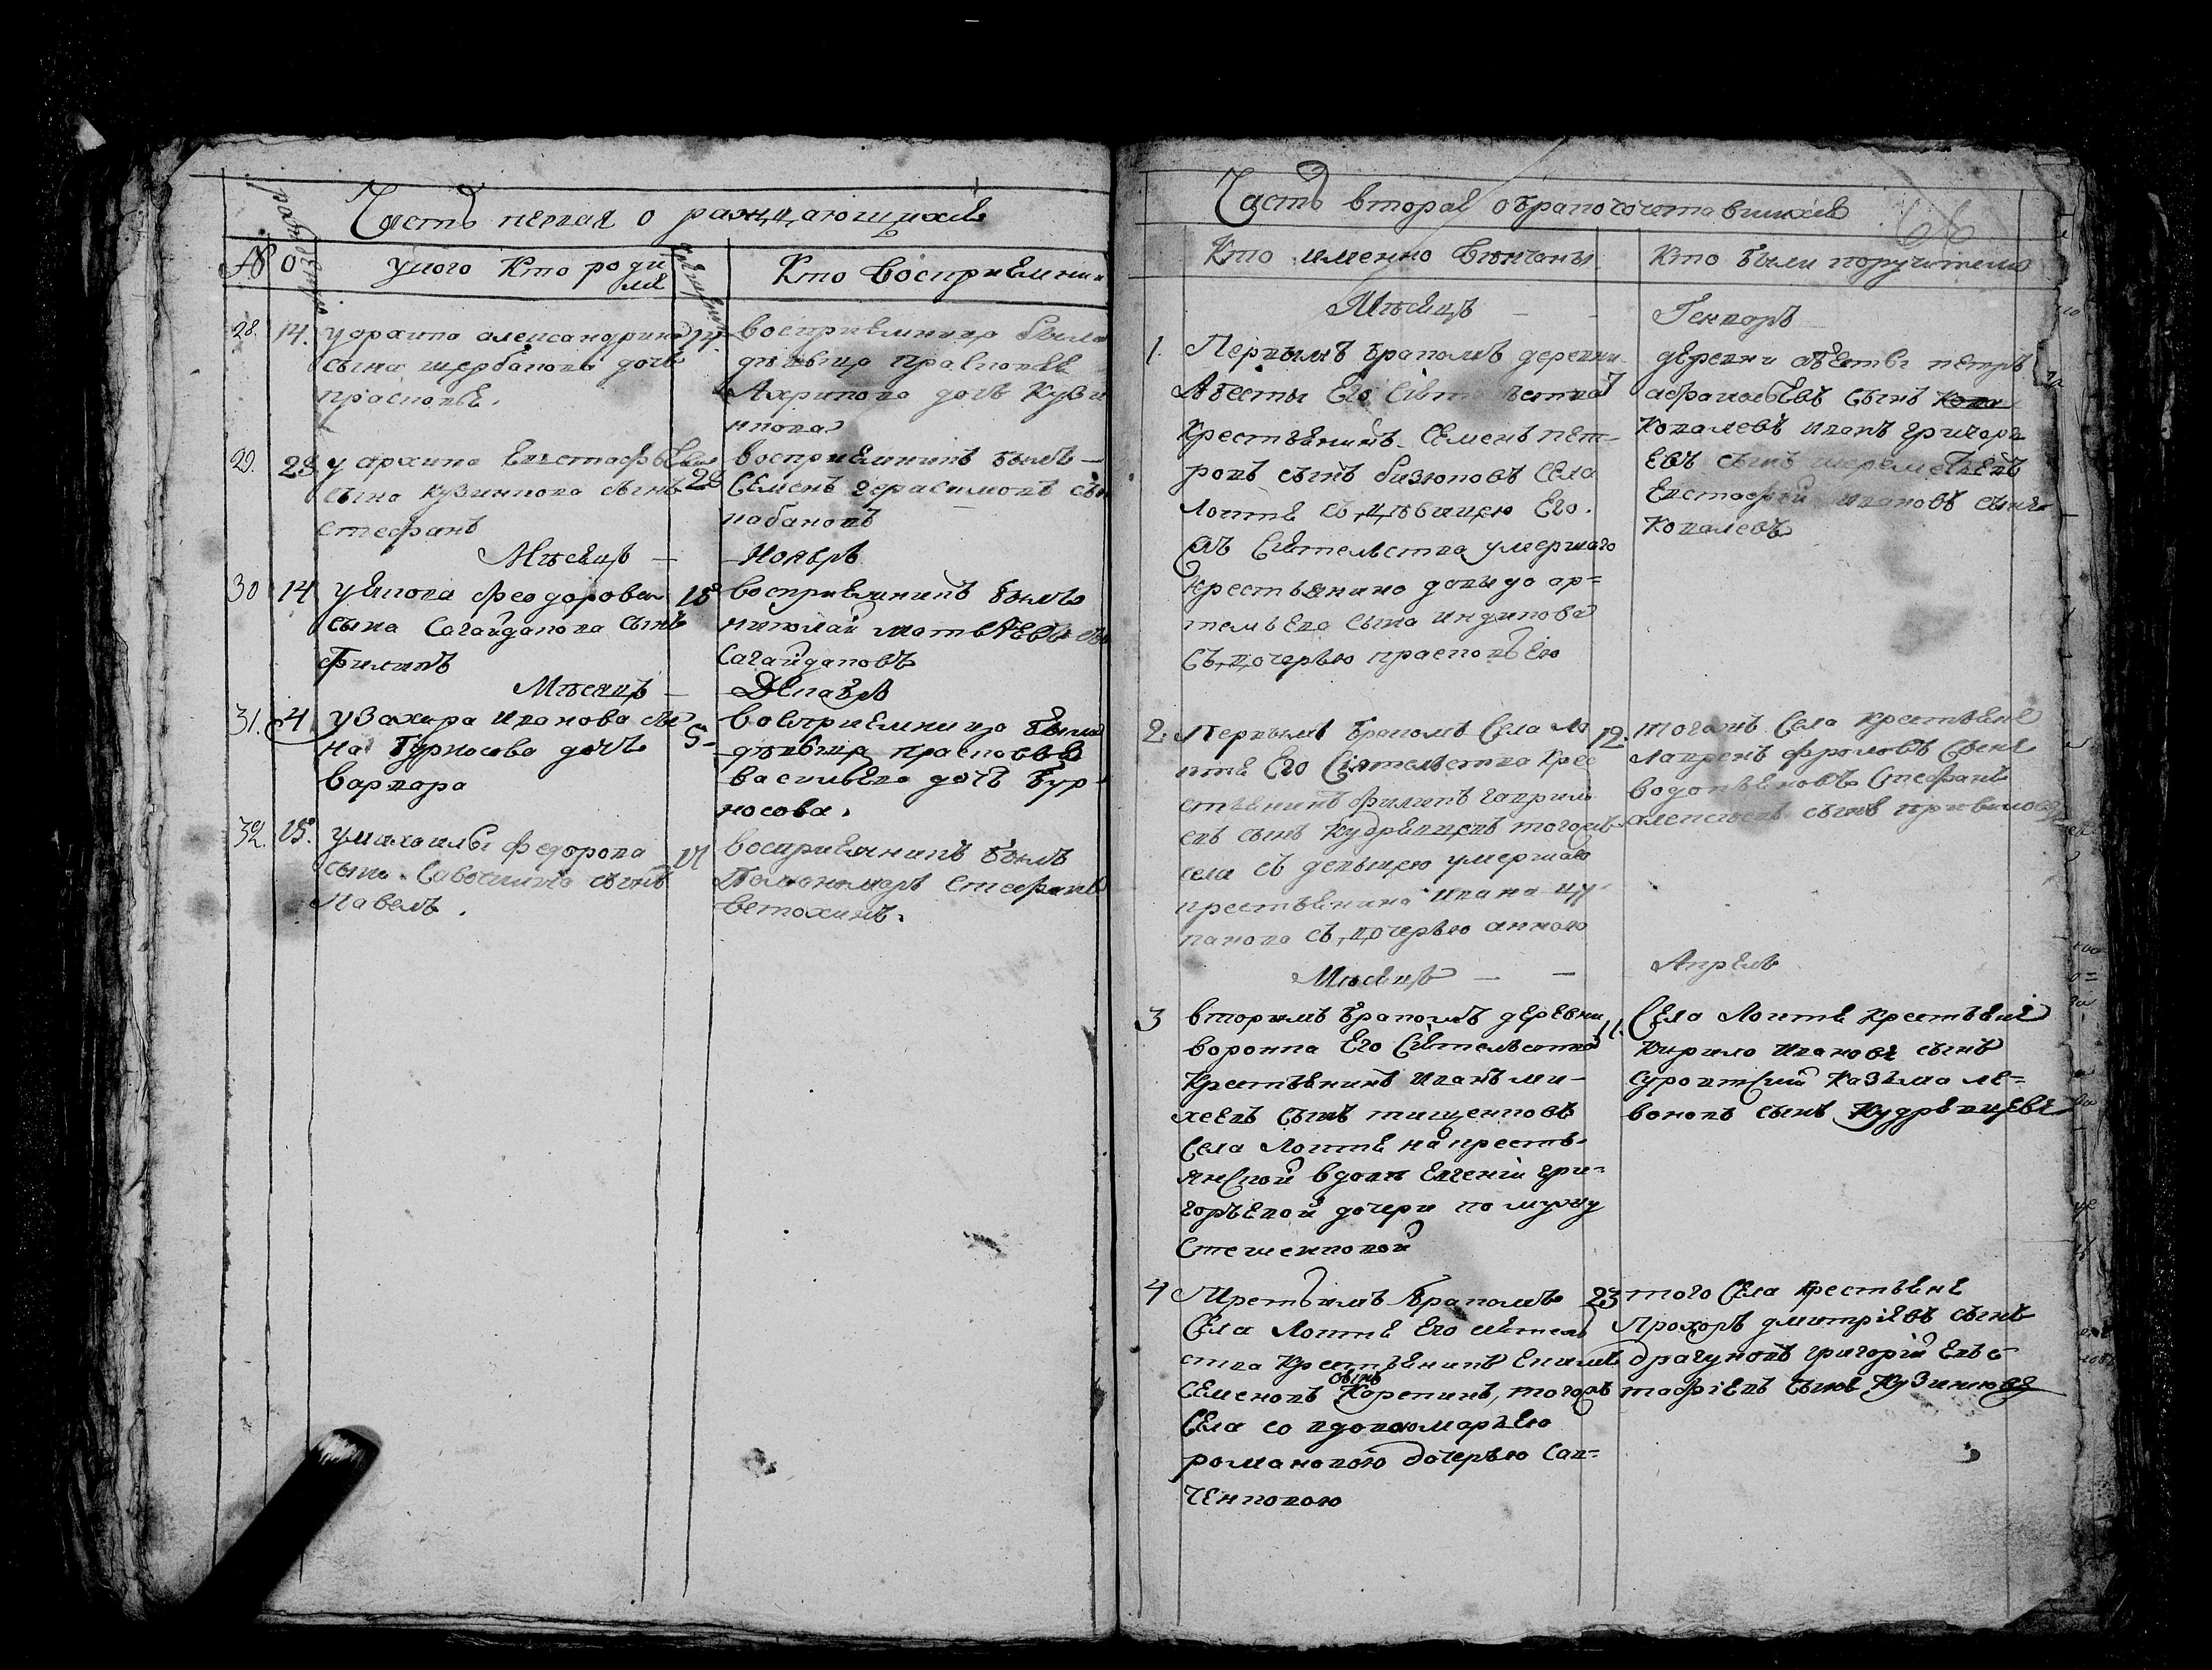 Часть первая о раждающихся
рождение
крещение
№ 0 у кого кто роди
лся
Кто восприемни
28. 14. у архипа александрина 14.
сына щербакова дочь
прасков&#39;я.
восприемница была
девица
Архипова дочь Кузи
нкова
29. 28 у архипа Евстафьева 28
сына кузинкова сынъ
стефанъ
восприемникъ былъ
Семенъ герасимовъ сы
кабаковъ
Мѣсяцъ — Ноябрь
30 14 у якова феодорова 15
сына Сагайдакова сынъ
Филипъ
восприемникъ былъ
николай матвѣевъ
Сагайдаковъ
Мѣсяцъ — Декабрь
31. 4 у Захара Иванова сы 5
на Бурносова дочь
варвара
восприемница была
дѣвица прасковья
васильева дочь Бур
носова.
32. 15. у михаилы федорова 17
сына сынъ
Павелъ.
восприемникъ былъ
Пономарь Стефанъ
ветохинъ.
Часть вторая о бракосочетавшихся
68
Кто именно венчаны
Кто были поручители
Мѣсяцъ — — Генварь
1. Первымъ бракомъ деревни
Абесты Его Сіятельства 7
Крестьянинъ Семенъ пет-
ровъ сынъ бизюковъ села
локтя съ дѣвицею Его.
Сіятельства умершаго
крестьянина давыда ар=
темьева сына индикова
съ дочерью прасковьею
деревни абесты петръ
сынъ
Ковалевъ иванъ григорь
евъ сынъ шереметьевъ
Евстафій ивановъ сынъ
Ковалевъ
2. Первымъ бракомъ Села ло 12.
ктя Его Сіятельства крес
стьянинъ филипъ гаврил
евъ сынъ кудрявцевъ тогожъ
села съ девицею умершаго
крестьянина ивана цу
панова съ дочерью анною
тогожъ Села крестьяне
лаврень фроловъ сынъ
водопьяновъ Стефанъ
алексеевъ сынъ
Мѣсяцъ — — Апрель
3 вторымъ бракомъ деревни 11.
воронка Его Сіятельства
Крестьянинъ иванъ ми-
хеевъ сынъ тищенковъ
села локтя на кресть-
янской вдове Евгеніи гри=
горьевой дочери по мужу
Стешенковой
Села локтя крестьяне
Кирило Ивановъ сынъ
Козьма ле=
воновъ сынъ Кудрявцевъ
4 Третьимъ бракомъ 23
Села локтя Его сіятель
ства крестьянинъ
сынъ
Семеновъ Карепинъ, тогожъ
Села со вдовою марьею
романовою дочерью Сав=
ченковою
того Села крестьяне
Прохоръ дмитріевъ сынъ
драгуновъ григорій Евъс-
тафіевъ сынъ Кузинковъ